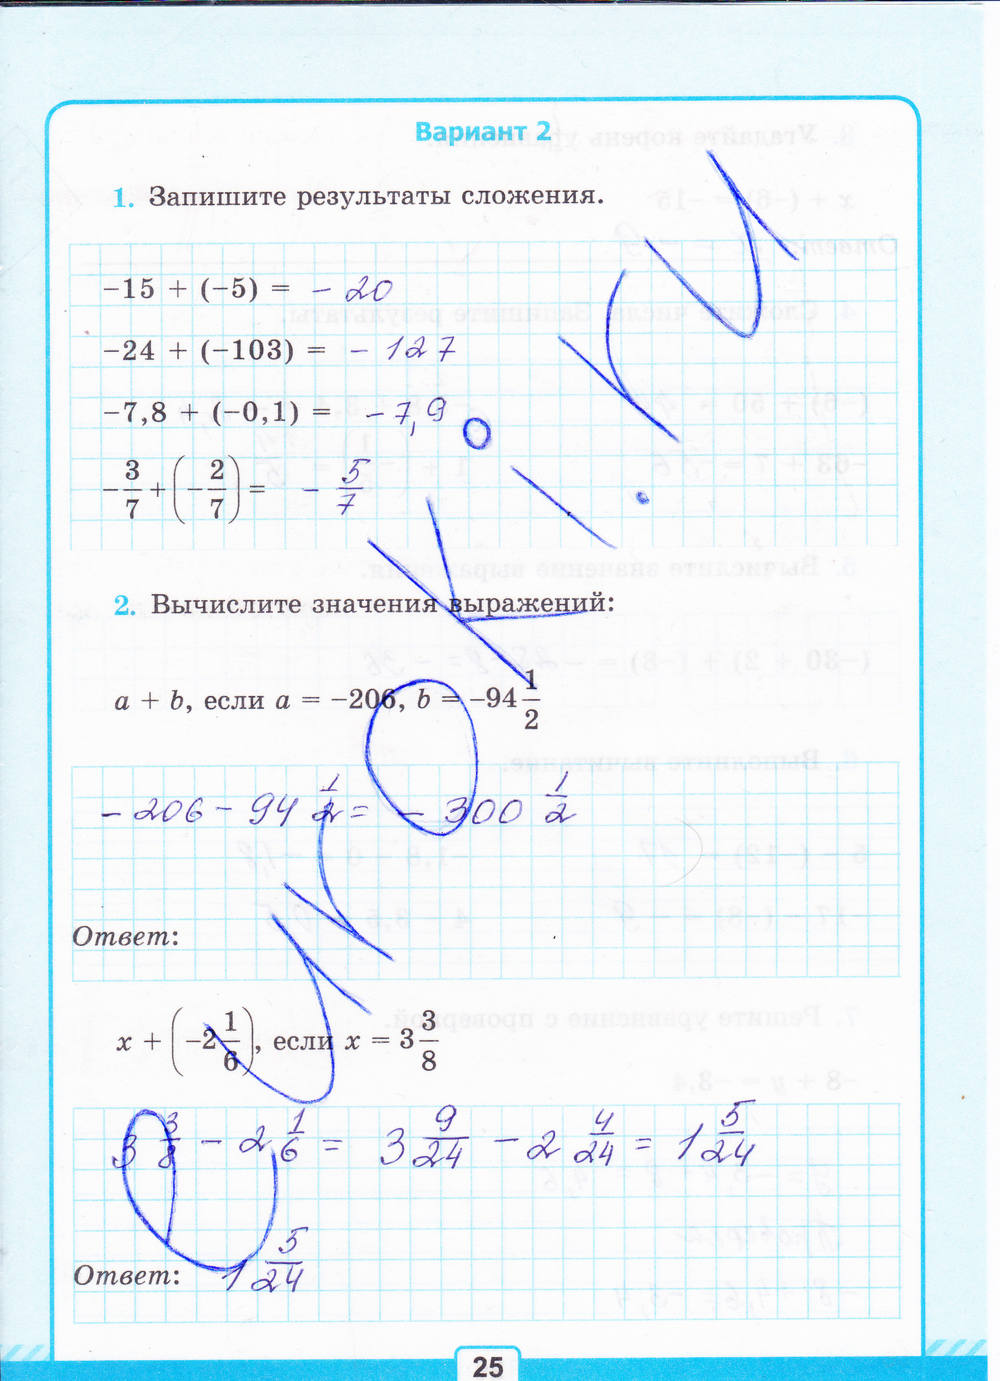 Вариант 2
1. Запишите результаты сложения.
−15 + (−5) = − 20
−24 + (−103) = − 127
−7,8 + (−0,1) = − 7,9
−3/7 + (−2/7) = − 5/7
2. Вычислите значения выражений:
a + b, если a = −206, b = −94 1/2
− 206 − 94 1/2 = − 300 1/2
Ответ:
x + (−2 1/6), если x = 3 3/8
3 3/8 − 2 1/6 = 3 9/24 − 2 4/24 = 1 5/24
Ответ: 1 5/24
25